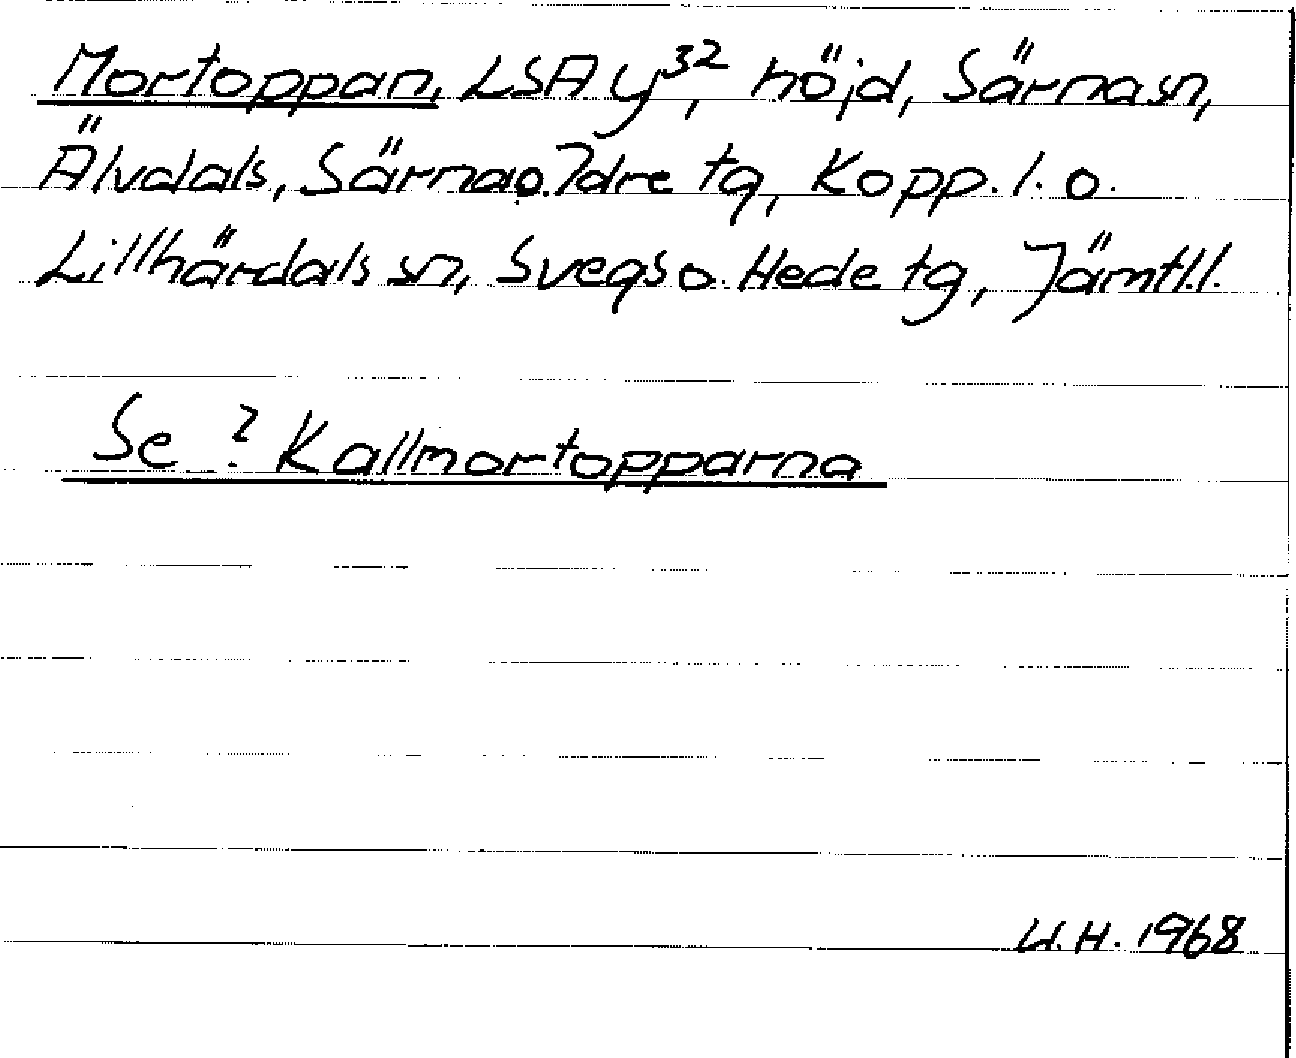 Mortoppan, LSA y³², höjd, Särna sn,
Älvdals, Särna o. Idre tg, Kopp. l. o.
Lillhärdals sn, Svegs o. Hede tg, Jämtl.l.
Se ? Kallmortopparna
U.H. 1968